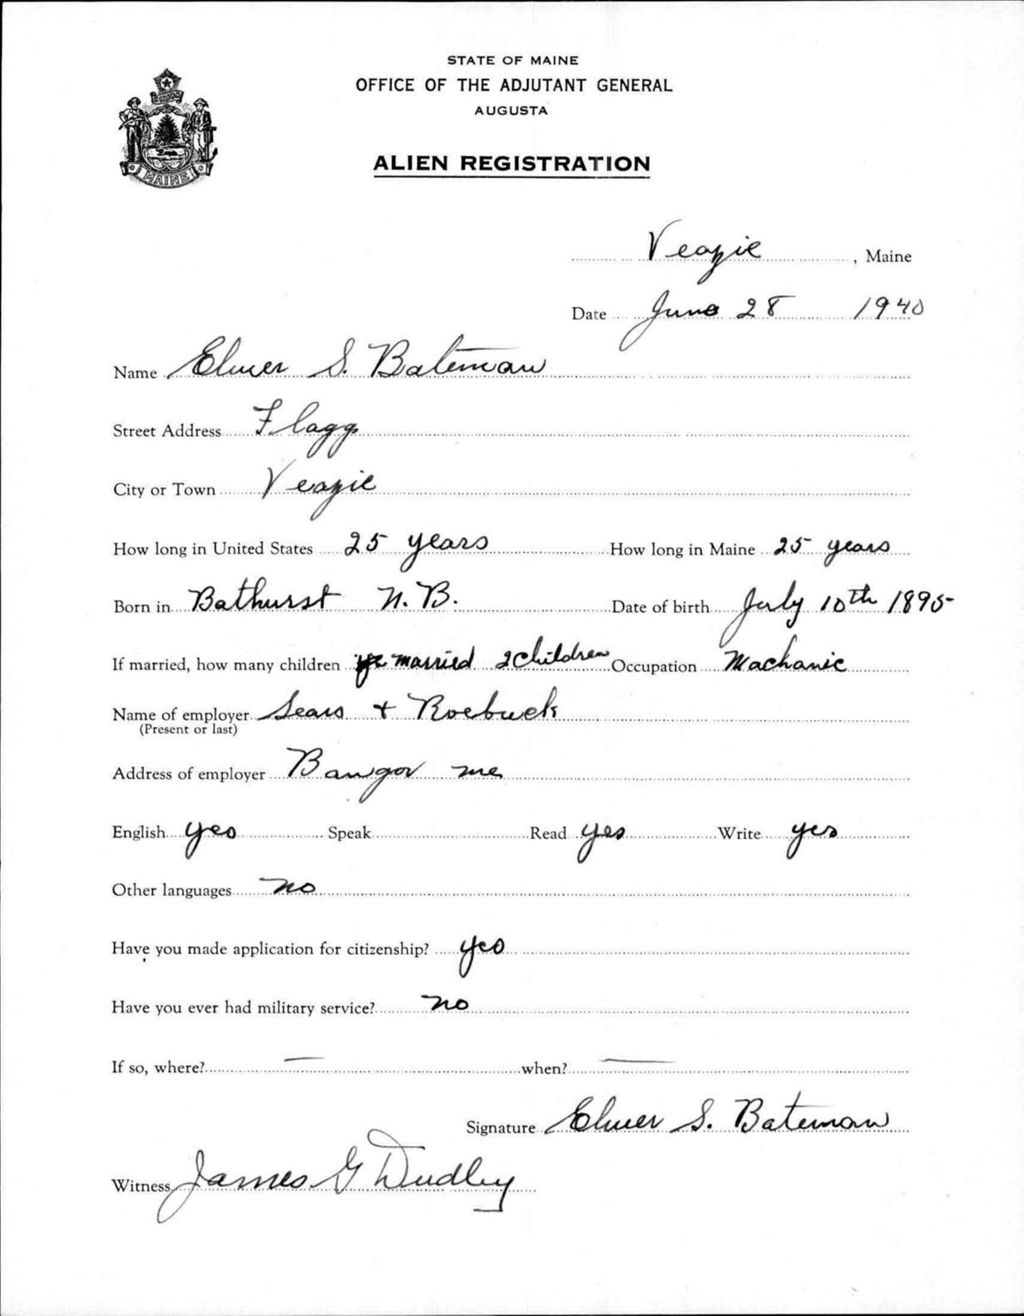 STATE OF MAINE
OFFICE OF THE ADJUTANT GENERAL
AUGUSTA
ALIEN REGISTRATION
MAINE
Veazie, Maine
Date June 28 1940
Name Elmer S. Bateman
Street Address Flagg
City or Town Veazie
How long in United States 25 years How long in Maine 25 years
Born in Bathurst N.B. Date of birth July 10th 1895
If married, how many children married 2 children Occupation Machanic
Name of employer Sears + Roebuck
(Present or last)
Address of employer Bangor me
English yes Speak Read yes Write yes
Other languages no
Have you made application for citizenship? yes
Have you ever had military service? no
If so, where? — when? —
Signature Elmer S. Bateman
Witness James G Dudley